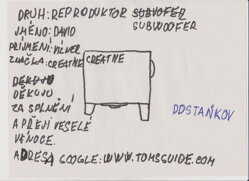 DRUH: REPRODUKTOR SUBVOFER
SUBWOOFER
JMÉNO: DAVID
PŘÍJMENÍ:
ZNAČKA: CREATIVE
CREATIVE
DĚKUJO
DĚKUJU
ZA SPLNĚNÍ
A PŘEJI VESELÉ
VÁNOCE.
ADRESA GOOGLE: WWW.TOMSGUIDE.COM